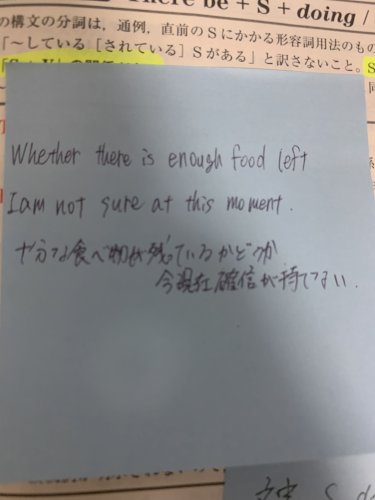 There be + S + doing /
の構文の分詞は，通例，直前のSにかかる形容詞用法のもの
「～している［されている］Sがある」と訳さないこと。S
Whether there is enough food left
I am not sure at this moment.
十分な食べ物が残っているかどうか
今現在確信が持てない.
S d